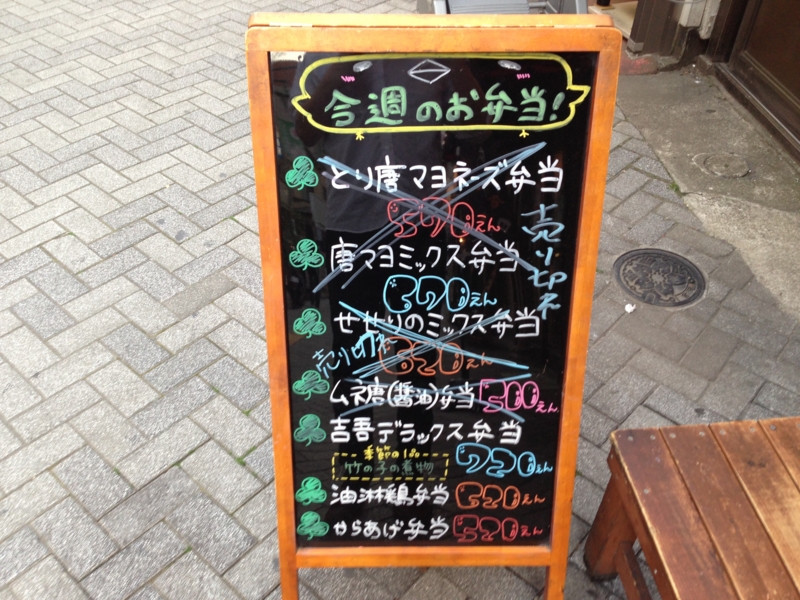 今週のお弁当!
とり唐マヨネーズ弁当
570えん
売り切れ
唐マヨミックス弁当
670えん
せせりのミックス弁当
売り切れ
620えん
ムネ唐(醤油)弁当 500えん
吉吾デラックス弁当
季節の1品
竹の子の煮物
720えん
油淋鶏弁当 620えん
からあげ弁当 520えん